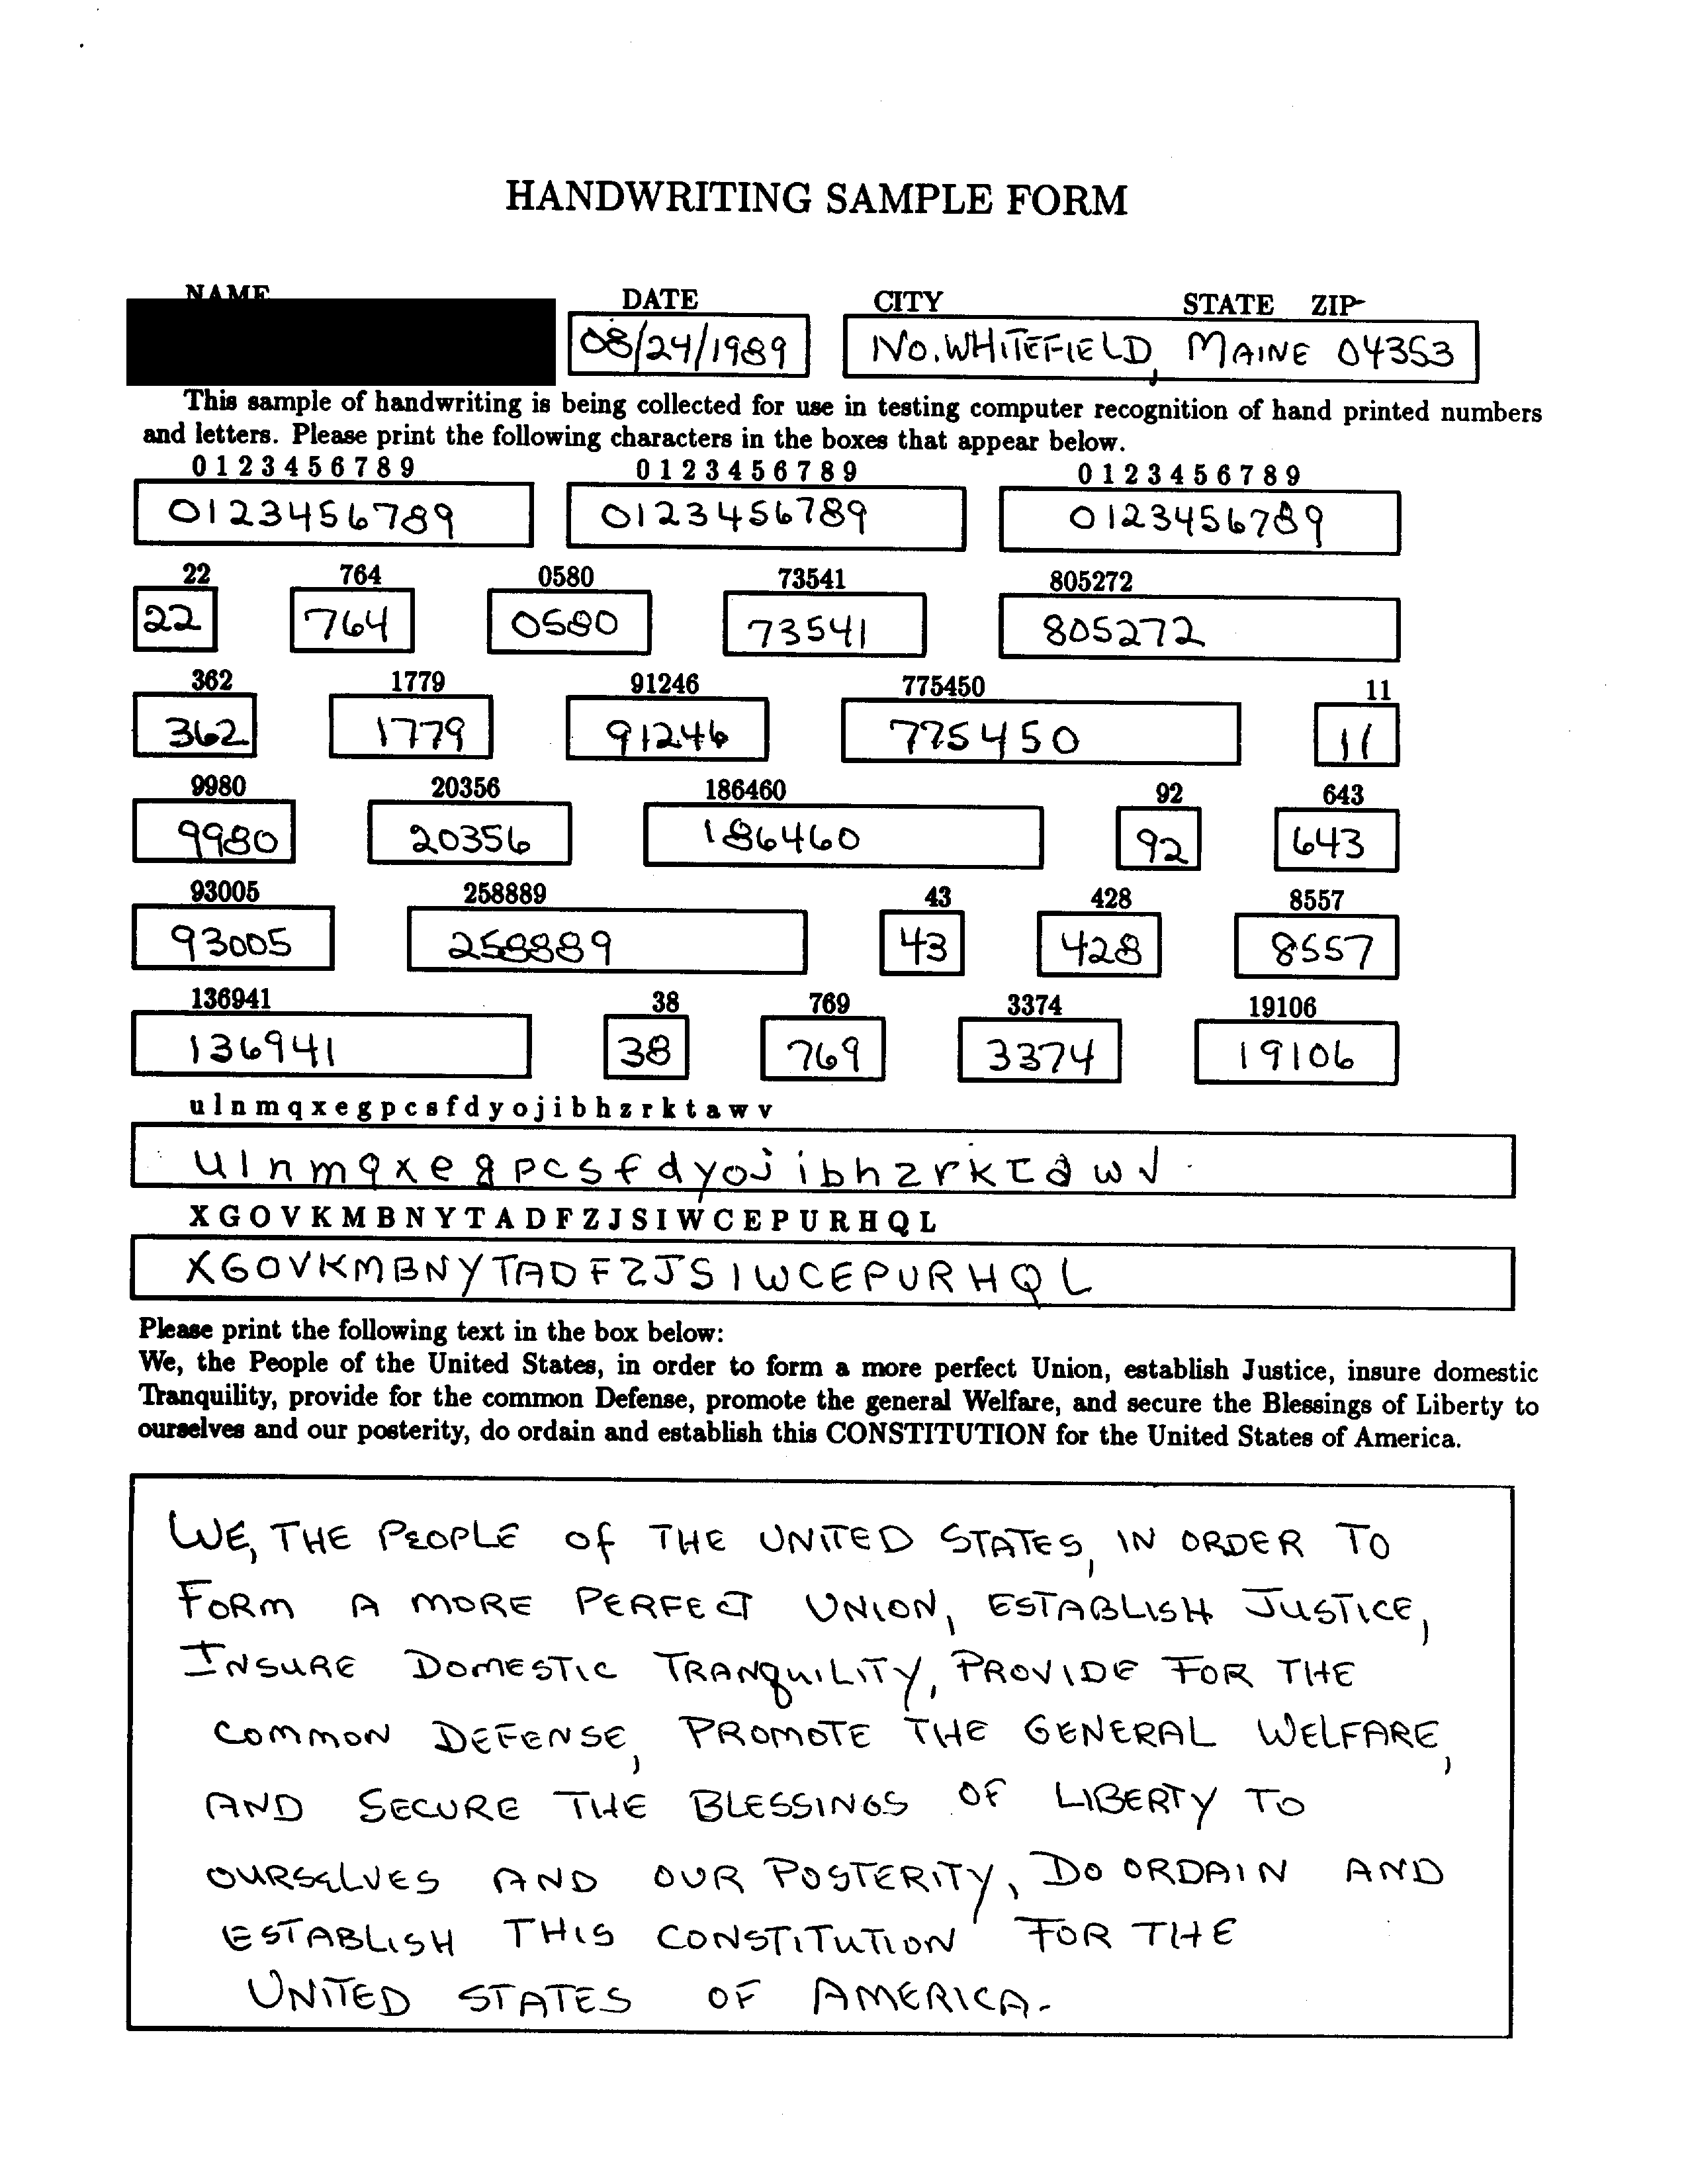 HANDWRITING SAMPLE FORM
NAME DATE CITY STATE ZIP
08/24/1989 NO. WHITEFIELD, MAINE 04353
This sample of handwriting is being collected for use in testing computer recognition of hand printed numbers
and letters. Please print the following characters in the boxes that appear below.
0 1 2 3 4 5 6 7 8 9 0 1 2 3 4 5 6 7 8 9 0 1 2 3 4 5 6 7 8 9
0123456789 0123456789 0123456789
22 764 0580 73541 805272
22 764 0580 73541 805272
362 1779 91246 775450 11
362 1779 91246 775450 11
9980 20356 186460 92 643
9980 20356 186460 92 643
93005 258889 43 428 8557
93005 258889 43 428 8557
136941 38 769 3374 19106
136941 38 769 3374 19106
u l n m q x e g p c s f d y o j i b h z r k t a w v
u l n m q x e g p c s f d y o j i b h z r k t a w v
X G O V K M B N Y T A D F Z J S I W C E P U R H Q L
X G O V K M B N Y T A D F Z J S I W C E P U R H Q L
Please print the following text in the box below:
We, the People of the United States, in order to form a more perfect Union, establish Justice, insure domestic
Tranquility, provide for the common Defense, promote the general Welfare, and secure the Blessings of Liberty to
ourselves and our posterity, do ordain and establish this CONSTITUTION for the United States of America.
WE, THE PEOPLE OF THE UNITED STATES, IN ORDER TO
FORM A MORE PERFECT UNION, ESTABLISH JUSTICE,
INSURE DOMESTIC TRANQUILITY, PROVIDE FOR THE
COMMON DEFENSE, PROMOTE THE GENERAL WELFARE,
AND SECURE THE BLESSINGS OF LIBERTY TO
OURSELVES AND OUR POSTERITY, DO ORDAIN AND
ESTABLISH THIS CONSTITUTION FOR THE
UNITED STATES OF AMERICA.